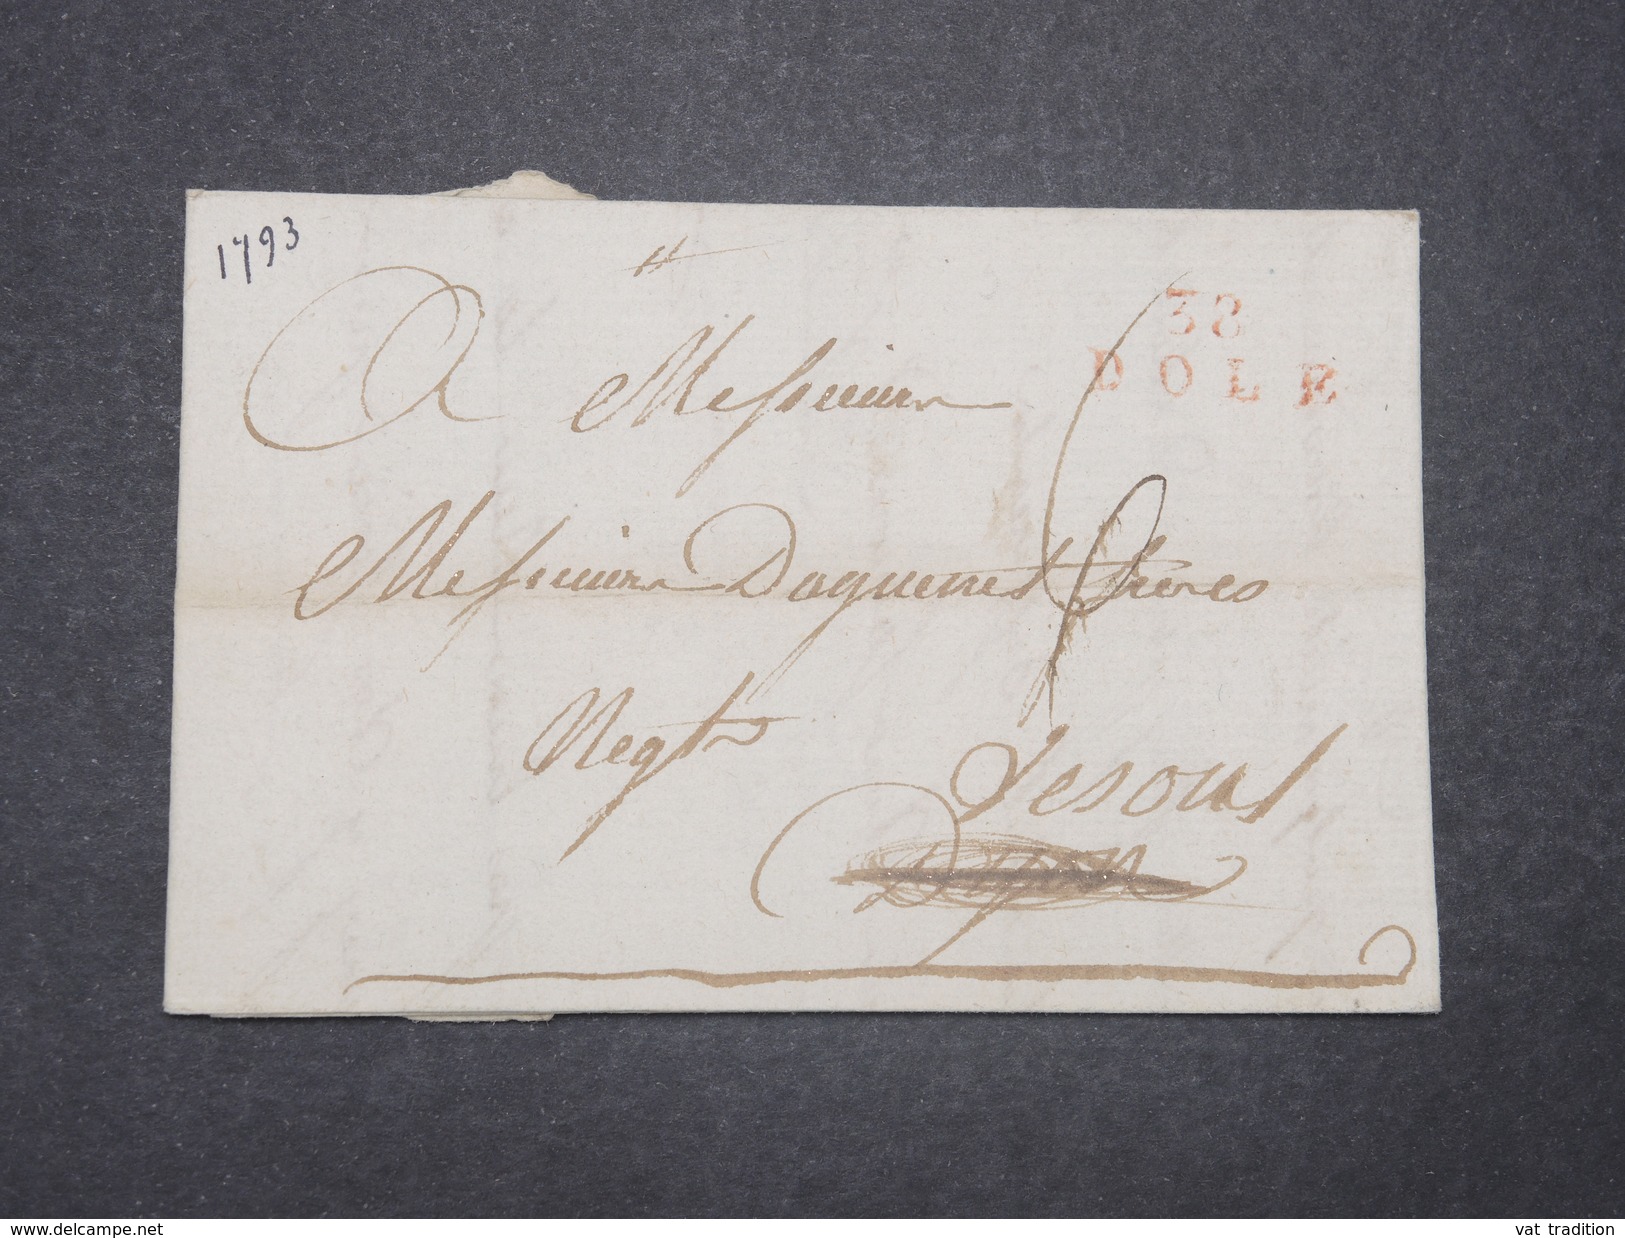 1793
38
DOLE
A Messieurs
Messieurs Daguenet freres
Negts
Vesoul
Dijon
www.delcampe.net
vat tradition